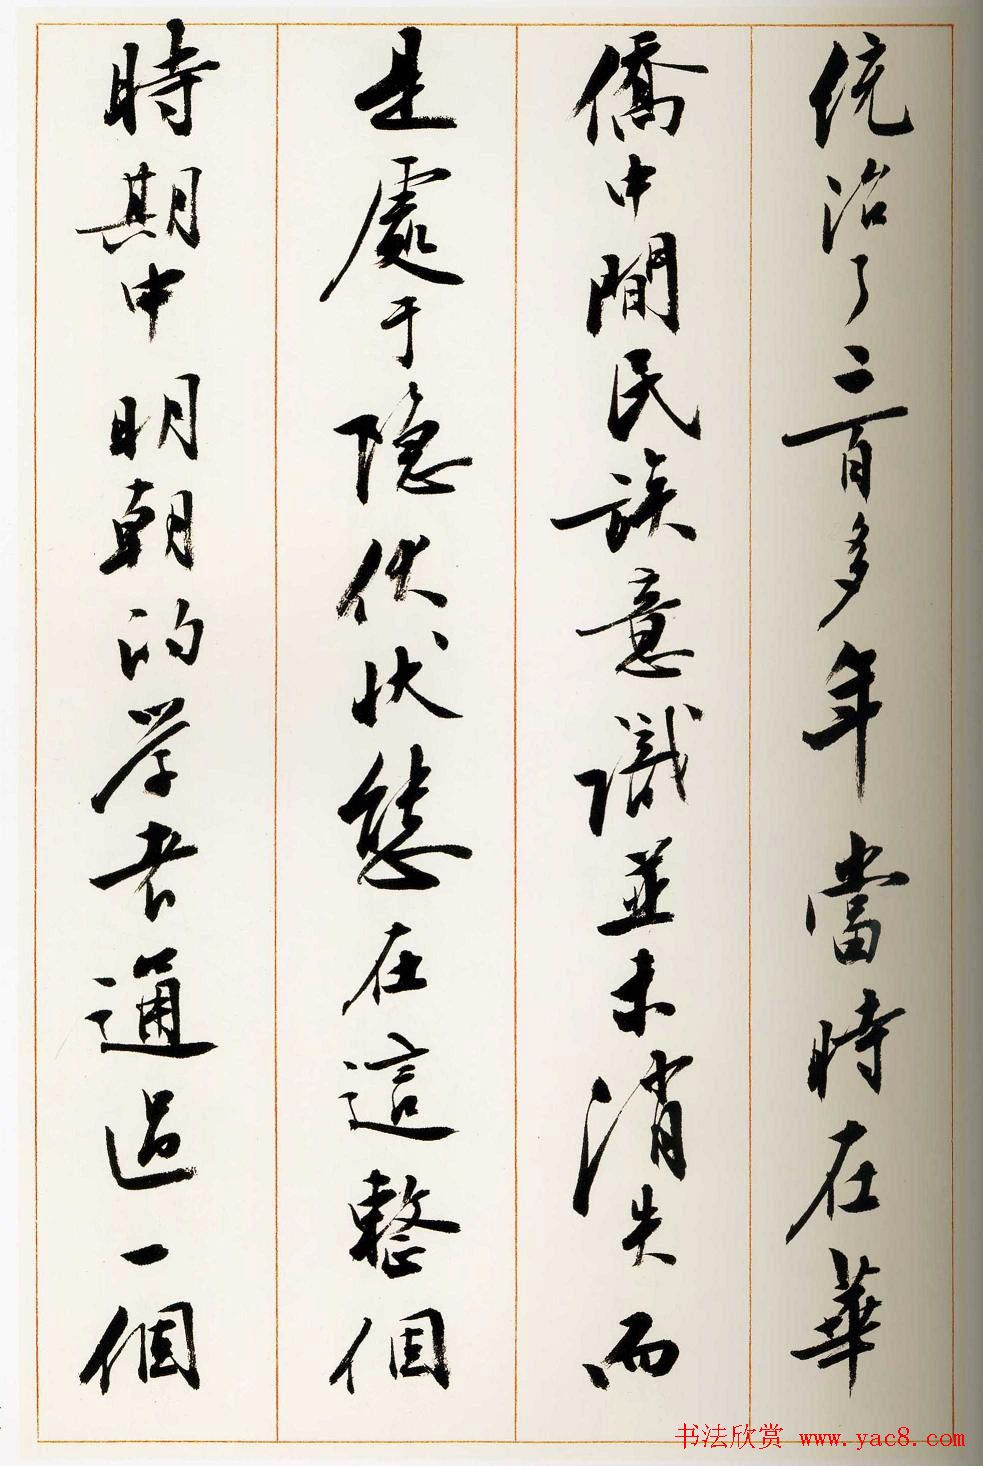 统治了二百多年當時在華
僑中間民族意識並未消失而
是處于隐伏状態在這整個
時期中明朝的学者通过一個
书法欣赏 www.yac8.com